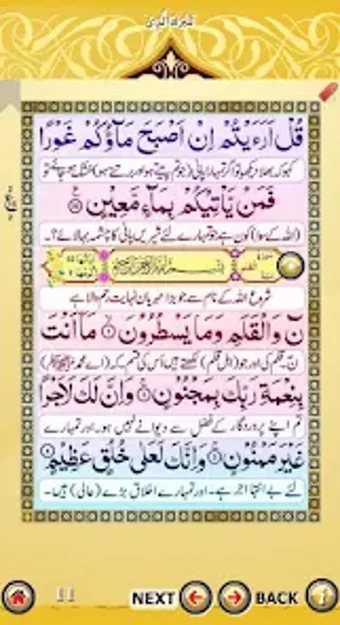 تبٰرک الذی
قُلْ اَرَءَيْتُمْ اِنْ اَصْبَحَ مَآؤُكُمْ غَوْرًا
کہو کہ بھلا دیکھو تو اگر تمہارا پانی (جو تم پیتے ہو اور برتتے ہو) خشک ہو جائے تو
فَمَنْ يَّاْتِيْكُمْ بِمَآءٍ مَّعِيْنٍ
(اللہ کے سوا) کون ہے جو تمہارے لئے شیریں پانی کا چشمہ بہا لائے؟۔
بِسْمِ اللّٰهِ الرَّحْمٰنِ الرَّحِيْمِ
شروع اللہ کے نام سے جو بڑا مہربان نہایت رحم والا ہے
نٓ وَالْقَلَمِ وَمَا يَسْطُرُوْنَ ۱ مَآ اَنْتَ
نٓ۔ قلم کی اور جو (اہل قلم) لکھتے ہیں اُس کی قسم۔ کہ (اے محمد ﷺ)
بِنِعْمَةِ رَبِّكَ بِمَجْنُوْنٍ ۲ وَاِنَّ لَكَ لَاَجْرًا
تم اپنے پروردگار کے فضل سے دیوانے نہیں ہو۔ اور تمہارے
غَيْرَ مَمْنُوْنٍ ۳ وَاِنَّكَ لَعَلٰى خُلُقٍ عَظِيْمٍ ۴
لئے بے انتہا اجر ہے۔ اور تمہارے اخلاق بڑے (عالی) ہیں۔
11 NEXT BACK i